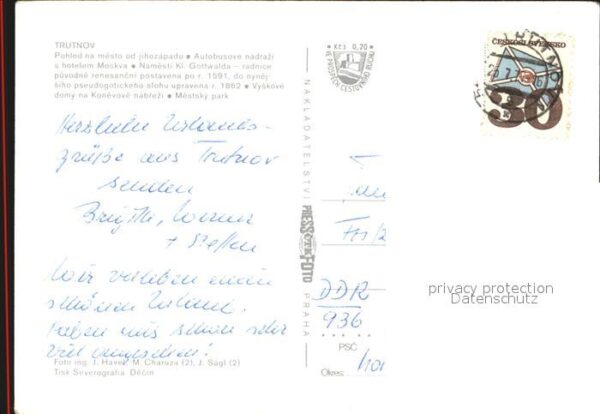 TRUTNOV
Pohled na město od jihozápadu • Autobusové nádraží
s hotelem Moskva • Náměstí Kl. Gottwalda – radnice
původně renesanční postavena po r. 1591, do nyněj-
šího pseudogotického slohu upravena r. 1862 • Výškové
domy na Koněvově nábřeží • Městský park
Herzliche Urlaubs-
grüße aus Trutnov
senden
Brigitte, Werner
+ Steffen
Wir verleben einen
schönen Urlaub.
Haben uns schon sehr
viel angesehen!
Foto ing. J. Havel, M. Charuza (2), J. Ságl (2)
Tisk Severografia Děčín
Kčs 0,20
VE PROSPĚCH CESTOVNÍHO RUCHU
NAKLADATELSTVÍ
PRESSFOTO
PRAHA
ČESKOSLOVENSKO
30
DDR
936
PSČ
Okres:
privacy protection
Datenschutz